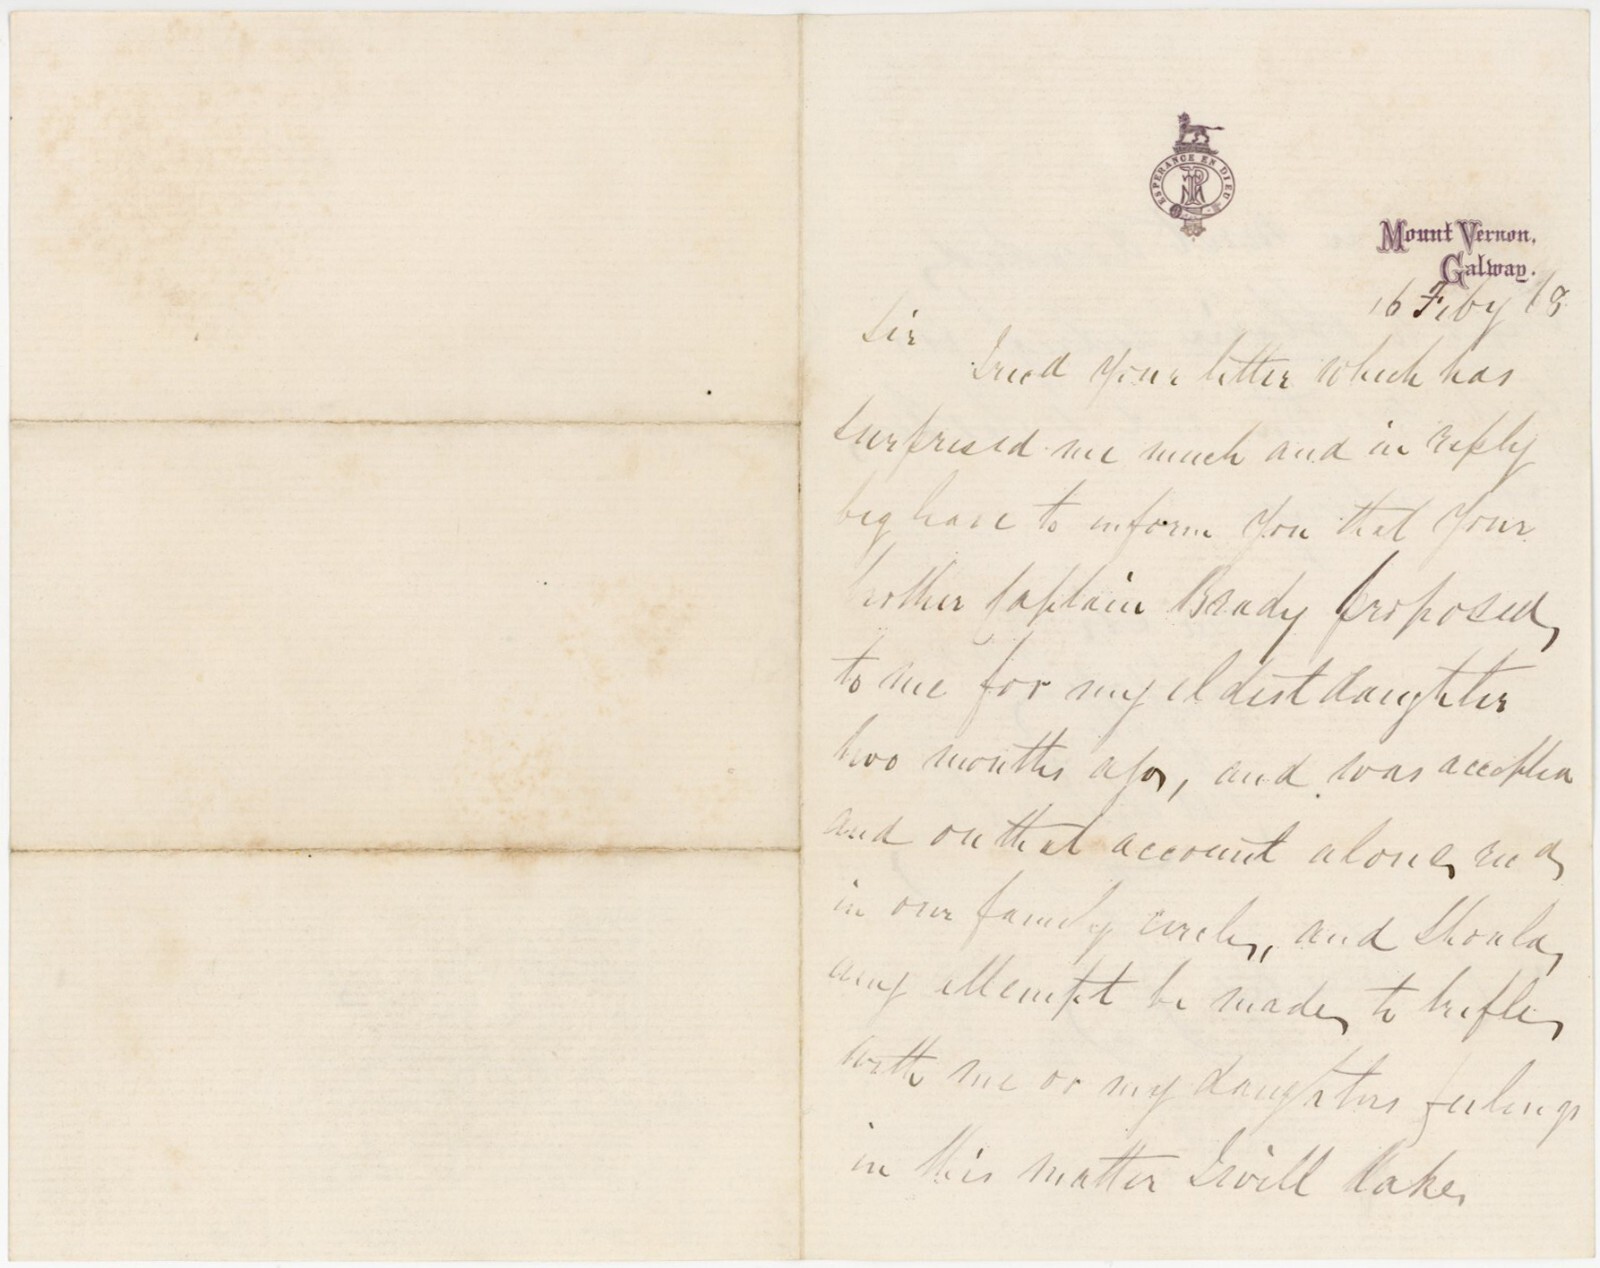 ESPERANCE EN DIEU
Mount Vernon,
Galway.
16 Feby 68
Sir
I recd your letter which has
surprised me much and in reply
beg leave to inform you that your
brother Captain Brady proposed,
to me for my eldest daughter
two months ago, and was accepted
and on that account alone, recd,
in our family circle, and should,
any attempt be made, to trifle,
with me or my daughters feelings
in this matter I will take,